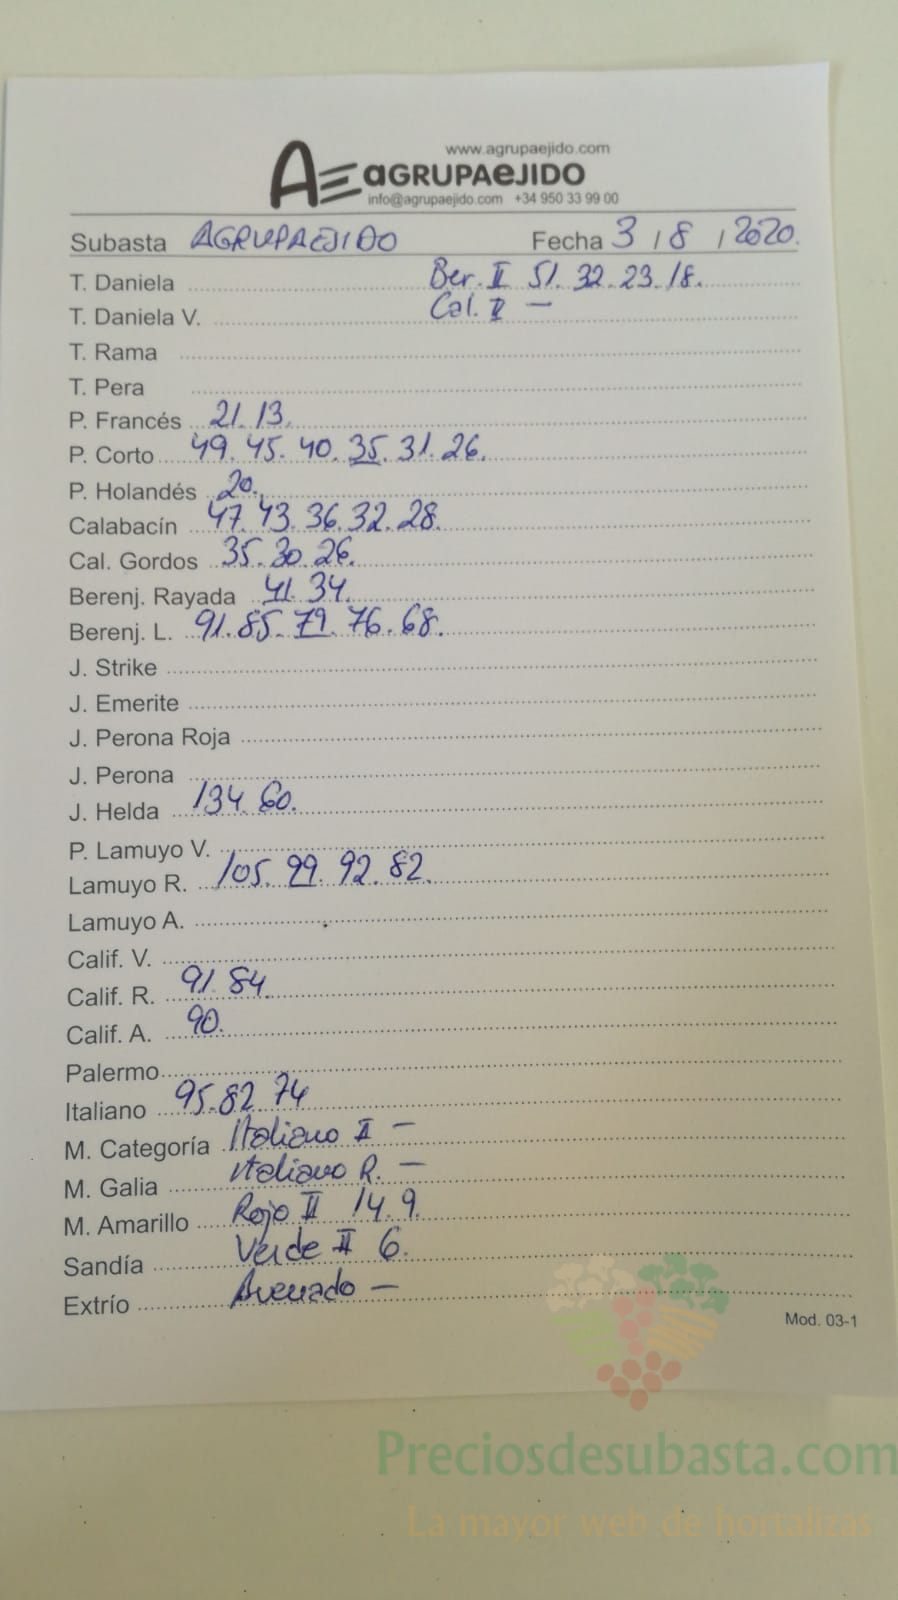 www.agrupaejido.com
AGRUPAEJIDO
info@agrupaejido.com +34 950 33 99 00
Subasta AGRUPAEJIDO Fecha 3 / 8 / 2020.
T. Daniela Ber. II 51. 32. 23. 18.
T. Daniela V. Cal. II —
T. Rama
T. Pera
P. Francés 21. 13.
P. Corto 49. 45. 40. 35. 31. 26.
P. Holandés 20.
Calabacín 47. 43. 36. 32. 28.
Cal. Gordos 35. 30. 26.
Berenj. Rayada 41. 34.
Berenj. L. 91. 85. 79. 76. 68.
J. Strike
J. Emerite
J. Perona Roja
J. Perona
J. Helda 134. 60.
P. Lamuyo V.
Lamuyo R. 105. 99. 92. 82.
Lamuyo A.
Calif. V.
Calif. R. 91. 84.
Calif. A. 90.
Palermo
Italiano 95. 82. 74
M. Categoría Italiano II —
M. Galia Italiano R. —
M. Amarillo Rojo II 14. 9.
Sandía Verde II 6.
Extrío Asurado —
Mod. 03-1
Preciosdesubasta.com
La mayor web de hortalizas